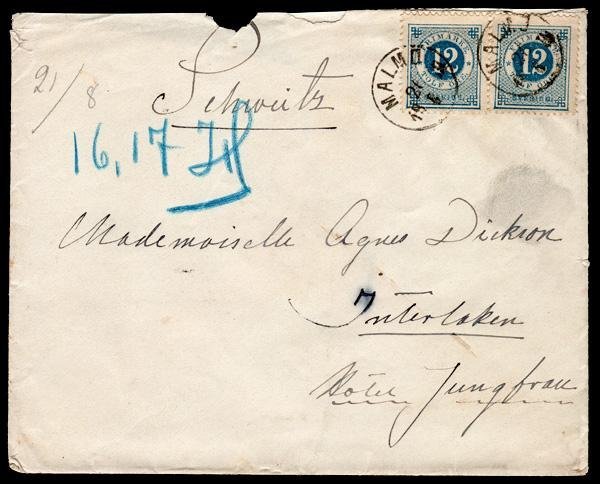 FRIMÄRKE 12 TOLV ÖRE SVERIGE
12
MALMÖ
MALMÖ
21/8
Schweitz
16, 17
Mademoiselle Agnes Dickson
Interlaken
Hôtel Jungfrau